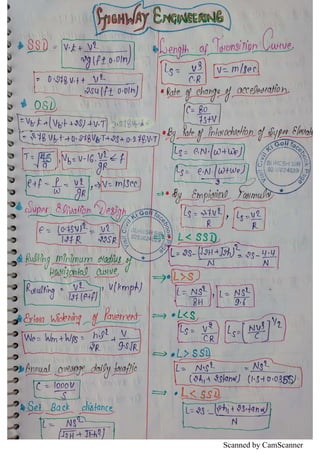 HIGHWAY ENGINEERING
SSD = V.t + V²/2g(f ± 0.01n)
= 0.278V.t + V²/254(f ± 0.01n)
OSD
= Vb.t + (Vb.t + 2S) + V.T
= 0.278 Vb t + 0.278 Vb T + 2S + 0.278 V.T
T = √(4S/a) Vb = V-16.
e+f = P/W = V²/gR, V = m/sec
Super Elevation Design
e = (0.75V)²/127R = V²/225R
Ruling minimum radius of
Horizontal curve
Rruling = V²/127(e+f), V(kmph)
Extra Widening of Pavement
We = Wm + Wps = nl²/2R + V/9.5√R
Annual average daily traffic
C = 1000V/S
Set Back distance
L = NS²/(√2H + √2h)²
Length of Transition Curve
Ls = V³/C.R V = m/sec
Rate of change of acceleration
C = 80/75+V
By Rate of introduction of Super Elevation
Ls = e.N.(W+We)
Ls = e.N.(W+We)/2
By Empirical Formula
Ls = 2.7V²/R, Ls = V²/R
L < SSD
L = 2S - (√2H + √2h)²/N = 2S - 4.4/N
L > S
L = NS²/8H, L = NS²/9.6
L < S
Ls = V³/CR Ls = [NV³/C]^1/2
L > SSD
L = NS²/(2h₁ + 2S tanα) = NS²/(1.5 + 0.035S)
L < SSD
L = 2S - (2h₁ + 2S.tanα)/N
Scanned by CamScanner